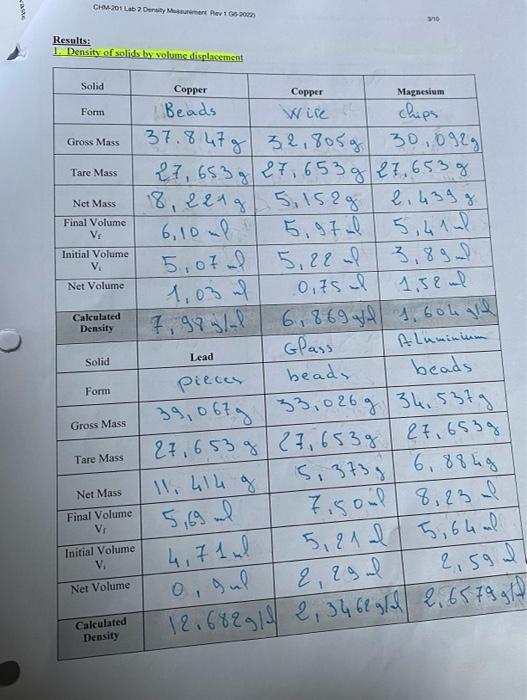 CHM-201 Lab 2 Density Measurement Rev 1 G6-2022)
3/10
Results:
1. Density of solids by volume displacement
Solid Copper Copper Magnesium
Form Beads Wire chips
Gross Mass 37.847g 32,805g 30,092g
Tare Mass 27,653g 27,653g 27,653g
Net Mass 8,221g 5,152g 2,439g
Final Volume 6,10 ml 5,97ml 5,41ml
Vf
Initial Volume 5,07ml 5,22ml 3,89ml
Vi
Net Volume 1,03 ml 0,75ml 1,52ml
Calculated 7,98g/ml 6,869g/ml 1,604g/ml
Density
Solid Lead Glass Aluminium
Form pieces beads beads
Gross Mass 39,067g 33,026g 34,537g
Tare Mass 27,653g 27,653g 27,653g
Net Mass 11,414 g 5,373g 6,884g
Final Volume 5,69ml 7,50ml 8,23ml
Vf
Initial Volume 4,71ml 5,21ml 5,64ml
Vi
Net Volume 0,9ml 2,29ml 2,59ml
Calculated 12,682g/ml 2,3462g/ml 2,6579g/ml
Density